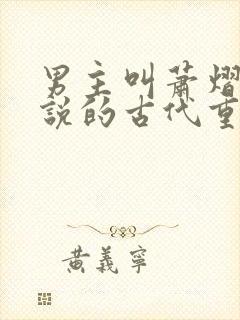 男主叫萧熠
說的古代重
黄義寧